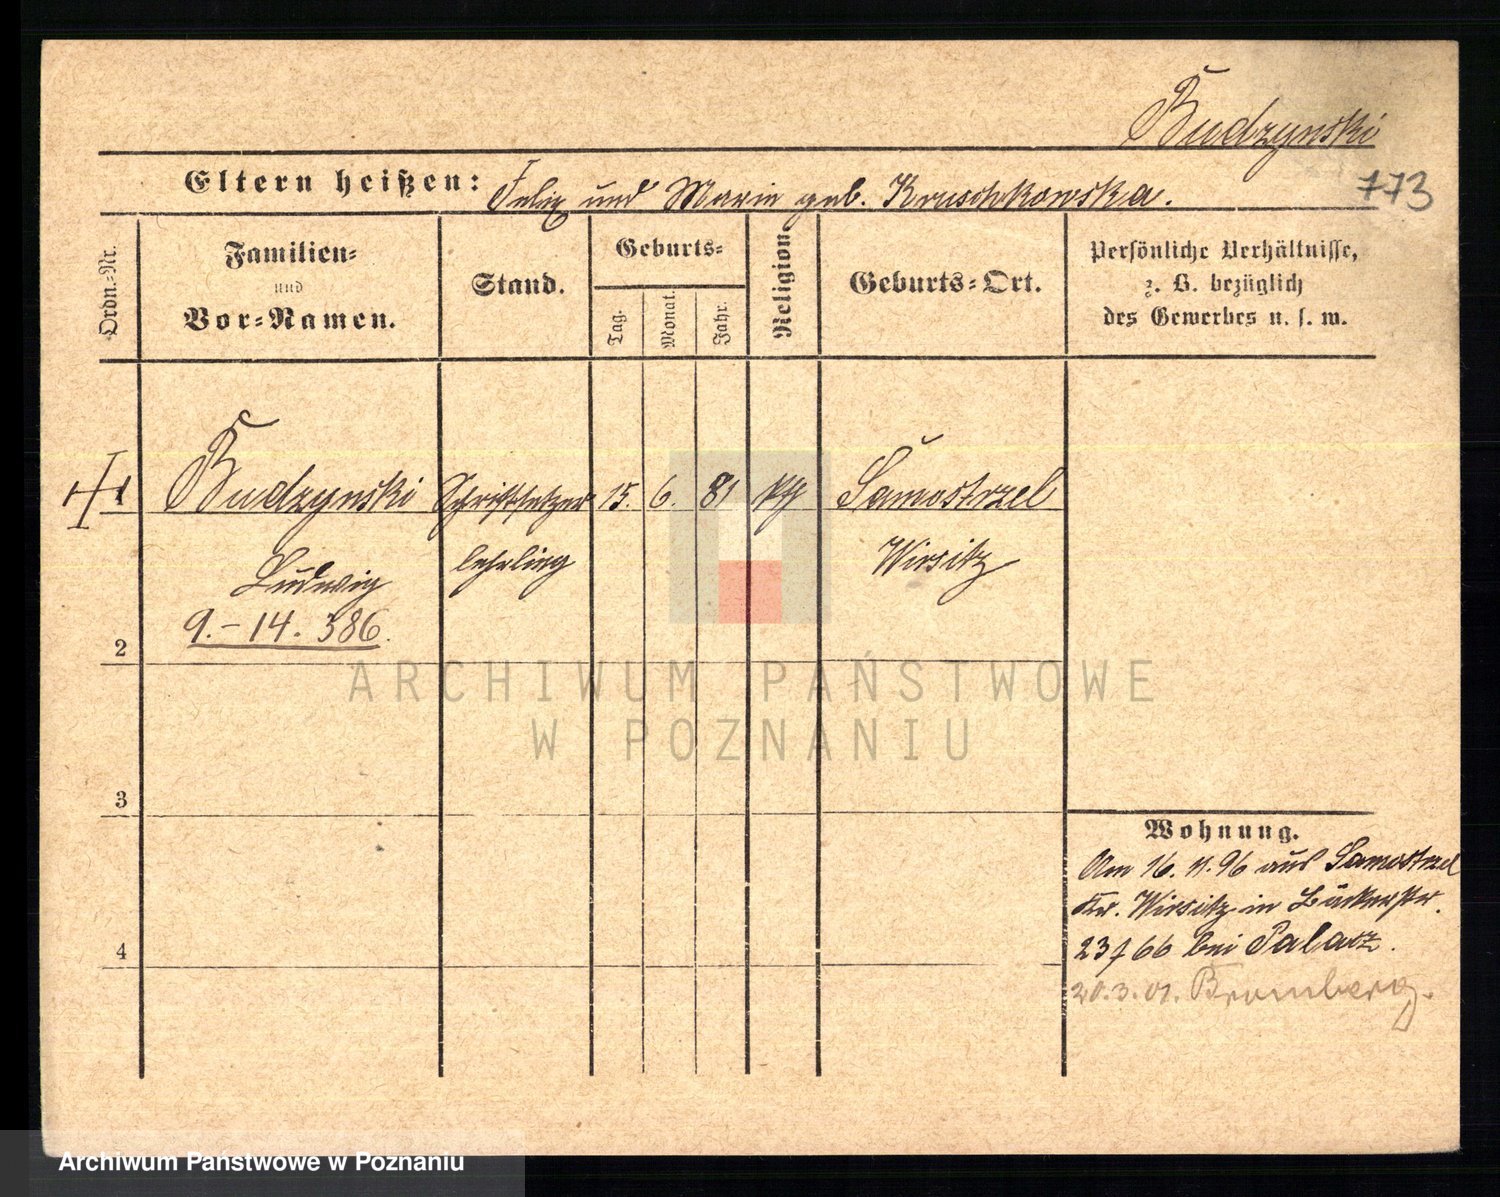 Budzynski
773
Eltern heißen: Felix und Marie geb. Kruschkowska.
Ordn.-Nr.
Familien-
und
Vor-Namen.
Stand.
Geburts-
Tag.
Monat.
Jahr.
Religion.
Geburts-Ort.
Persönliche Verhältnisse,
z. B. bezüglich
des Gewerbes u. s. w.
1 Budzynski Schriftsetzer 15. 6. 81 kth Samostrzel
lehrling Wirsitz
Ludwig
9.-14. 386.
2
3
4
Wohnung.
Am 16. 11. 96 aus Samostrzel
Kr. Wirsitz in Bäckerstr.
23/66 bei Palacz.
20.3.01. Bromberg.
ARCHIWUM PAŃSTWOWE
W POZNANIU
Archiwum Państwowe w Poznaniu